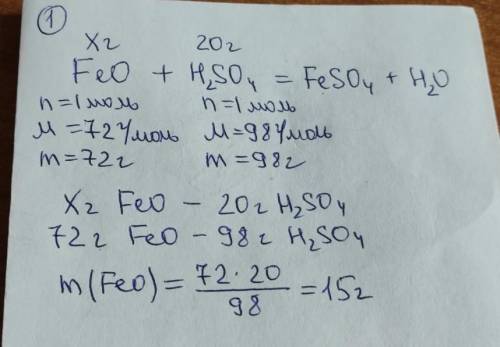 ①
Xг 20г
FeO + H₂SO₄ = FeSO₄ + H₂O
n=1моль n=1моль
M=72г/моль M=98г/моль
m=72г m=98г
Xг FeO – 20г H₂SO₄
72г FeO – 98г H₂SO₄
m(FeO) = 72·20/98 = 15г